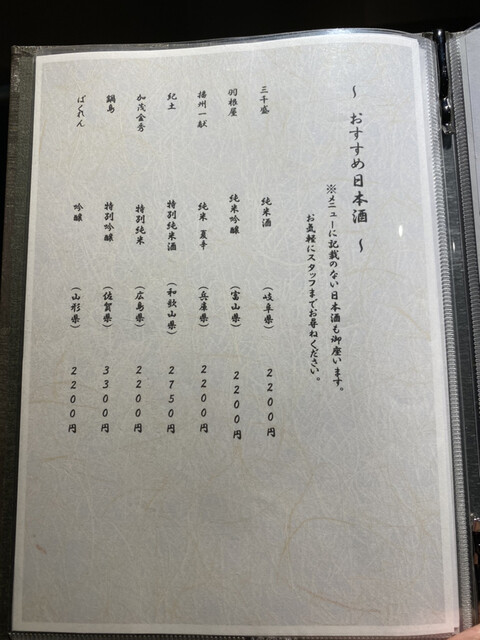 ～ おすすめ日本酒 ～
※メニューに記載のない日本酒も御座います。
お気軽にスタッフまでお尋ねください。
三千盛 純米酒 （岐阜県） 2200円
羽根屋 純米吟醸 （富山県） 2200円
播州一献 純米 夏辛 （兵庫県） 2200円
紀土 特別純米酒 （和歌山県） 2750円
加茂金秀 特別純米 （広島県） 2200円
鍋島 特別吟醸 （佐賀県） 3300円
ばくれん 吟醸 （山形県） 2200円